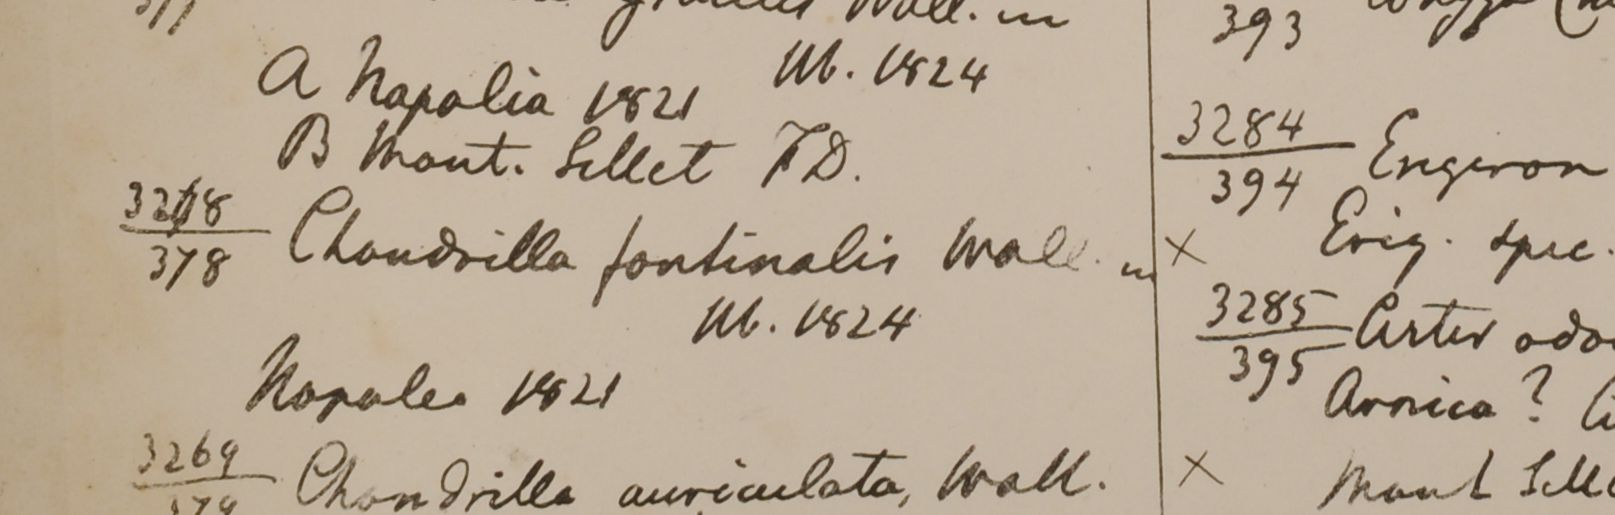 377 gracilis Wall. in
Ub. 1824
A Napalia 1821
B Mont. Sillet FD.
3268
378 Chondrilla fontinalis Wall. in
Ub. 1824
Napalea 1821
3269
379 Chondrilla auriculata, Wall.
393
3284
394 Engeron
× Erig. spec.
3285
395 Aster odo
Arnica?
× Mont Sille